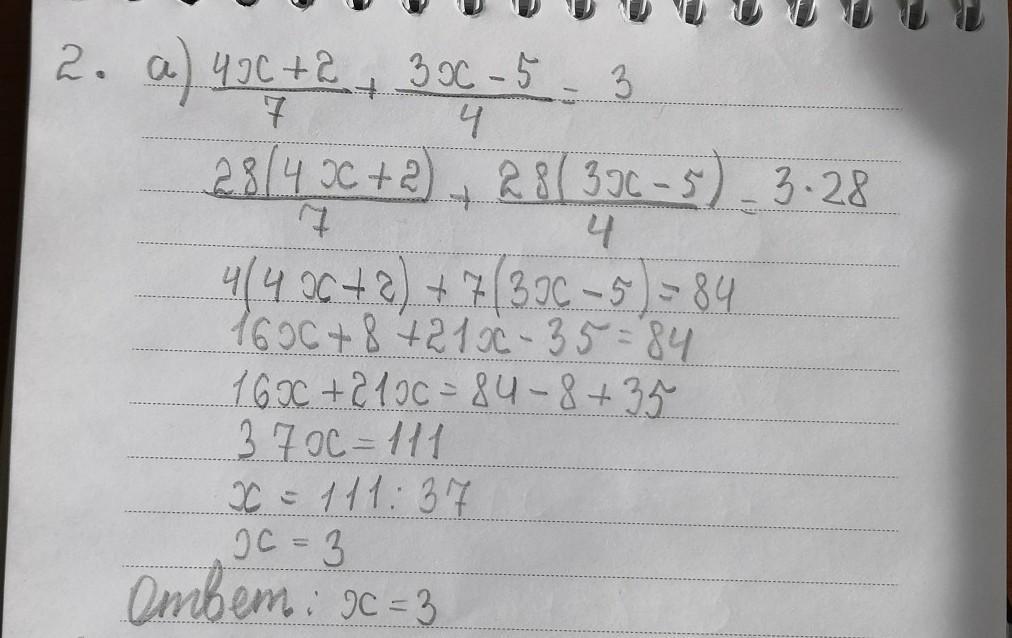 2. а) (4x+2)/7 + (3x-5)/4 = 3
28(4x+2)/7 + 28(3x-5)/4 = 3·28
4(4x+2) + 7(3x-5) = 84
16x+8+21x-35=84
16x+21x=84-8+35
37x=111
x = 111:37
x = 3
Ответ: x=3